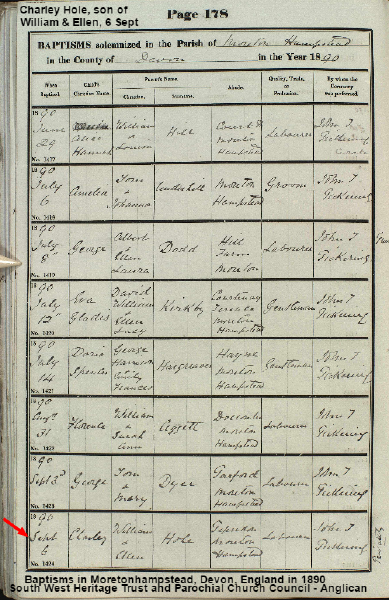 Charley Hole, son of
William & Ellen, 6 Sept
Page 178
BAPTISMS solemnized in the Parish of Moreton Hampstead
In the County of Devon in the Year 1890
When Baptized. Child's Christian Name. Parent's Name. Abode. Quality, Trade, or Profession. By whom the Ceremony was performed.
Christian. Surname.
1890 June 29 Hannah William & Louisa Hill Court St Moreton Hampstead Labourer John T Pickering
No. 1417
1890 July 6 Amelia Tom & Johanna Underhill Moreton Hampstead Groom John T Pickering
No. 1418
1890 July 8 George Albert Ellen Laura Dodd Hill Farm Moreton Labourer John T Pickering
No. 1419
1890 July 12 Eva Gladis David William Ellen Kirkby Courtenay Terrace Moreton Hampstead Gentleman John T Pickering
No. 1420
1890 July 14 Doris George Harrison & Emily Frances Hargreaves Hayne Moreton Hampstead Gentleman John T Pickering
No. 1421
1890 Augt 31 Florence William & Sarah Ann Aggett Doccombe Moreton Hampstead Labourer John T Pickering
No. 1422
1890 Sept 3d George Tom & Mary Dyer Moreton Hampstead Labourer John T Pickering
No. 1423
1890 Sept 6 Charley William & Ellen Hole Moreton Hampstead Labourer John T Pickering
No. 1424
Baptisms in Moretonhampstead, Devon, England in 1890
South West Heritage Trust and Parochial Church Council - Anglican